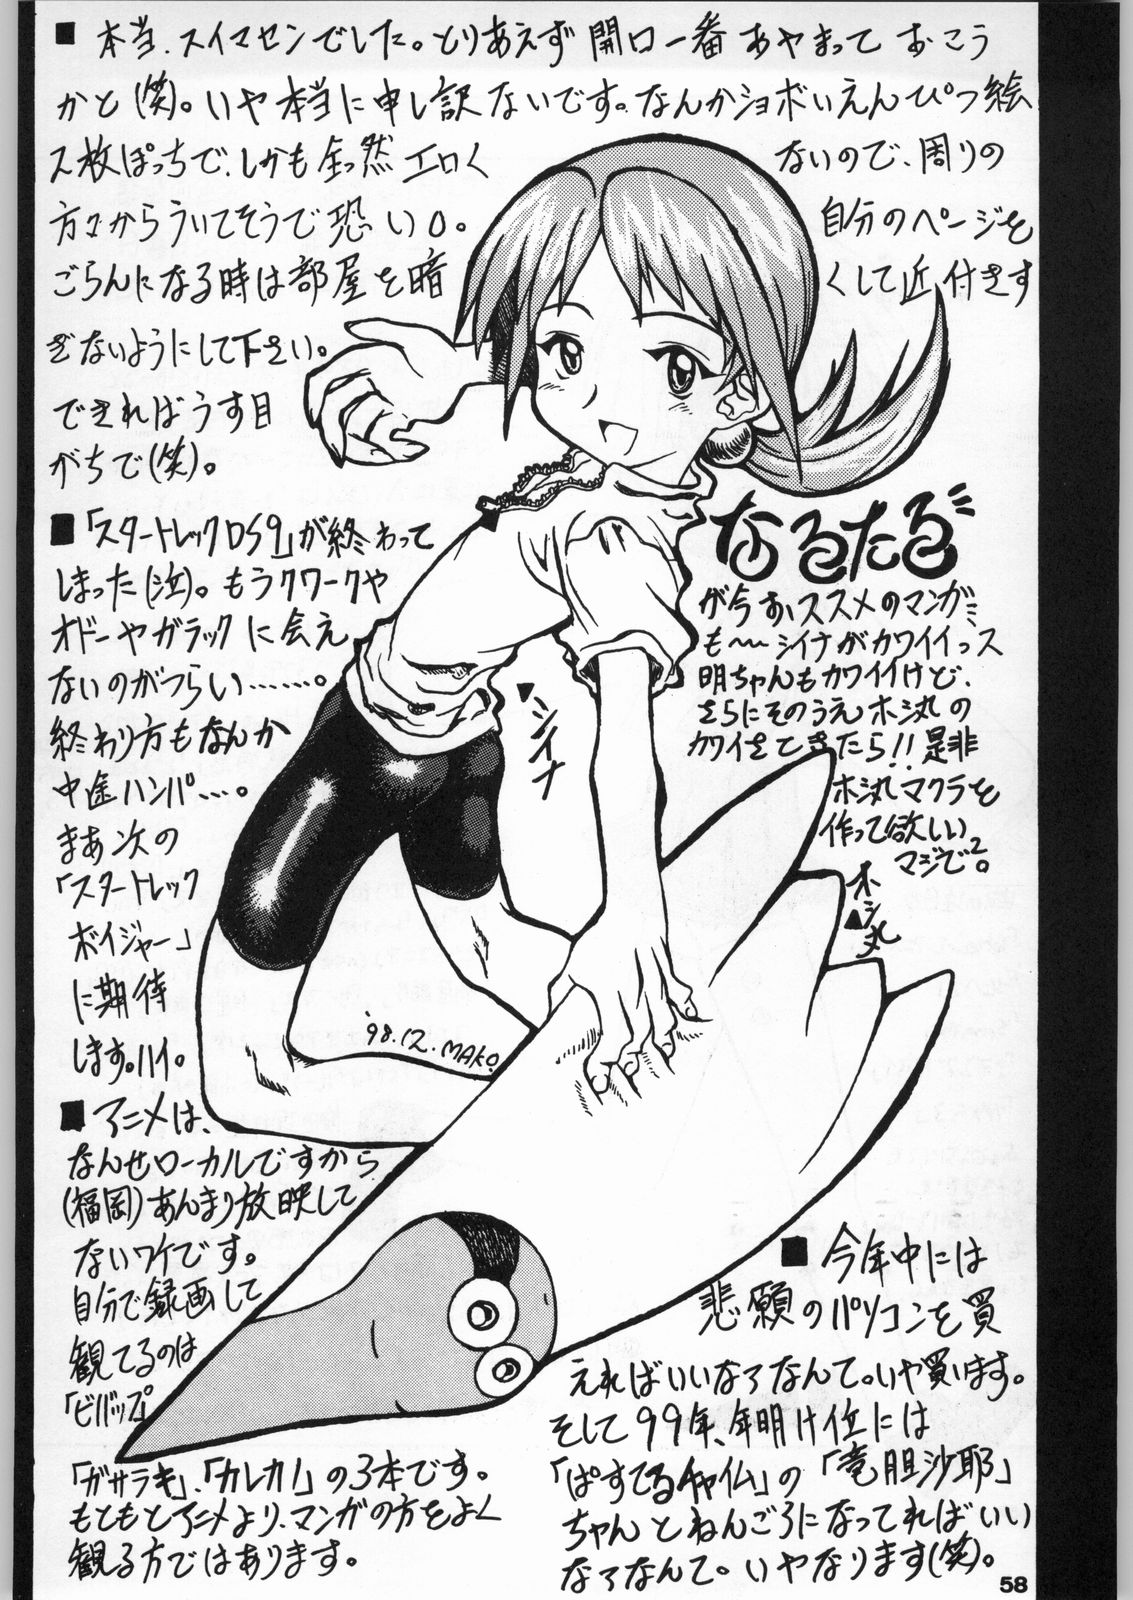 ■本当、スイマセンでした。とりあえず開口一番あやまっておこう
かと(笑)。いや本当に申し訳ないです。なんかショボいえんぴつ絵
2枚ぽっちで、しかも全っ然エロくないので、周りの
方々からういてそうで恐いっ。自分のページを
ごらんになる時は部屋を暗くして近付きす
ぎないようにして下さい。
できればうす目
がちで(笑)。
■「スタートレックDS9」が終わって
しまった(泣)。もうクワークや
オドーやガラックに会え
ないのがつらい………。
終わり方もなんか
中途ハンパ…。
まあ次の
「スタートレック
ボイジャー」
に期待
します。ハイ。
■アニメは、
なんせローカルですから
(福岡)あんまり放映して
ないワケです。
自分で録画して
観てるのは
「ビバップ」
「ガサラキ」、「カレカノ」の3本です。
もともとアニメより、マンガの方をよく
観る方ではあります。
なるたる
が今おススメのマンガ
も〜〜シイナがカワイイっス
明ちゃんもカワイイけど、
さらにそのうえホシ丸の
カワイさときたら!!是非
ホシ丸マクラを
作って欲しい
マジで2。
▲シイナ
ホシ丸▲
'98.12.MAKO
■今年中には
悲願のパソコンを買
えればいいなァなんて。いや買います。
そして99年、年明け位には
「ぱすてるチャイム」の「竜胆沙耶」
ちゃんとねんごろになってればいい
なァなんて。いやなります(笑)。
58